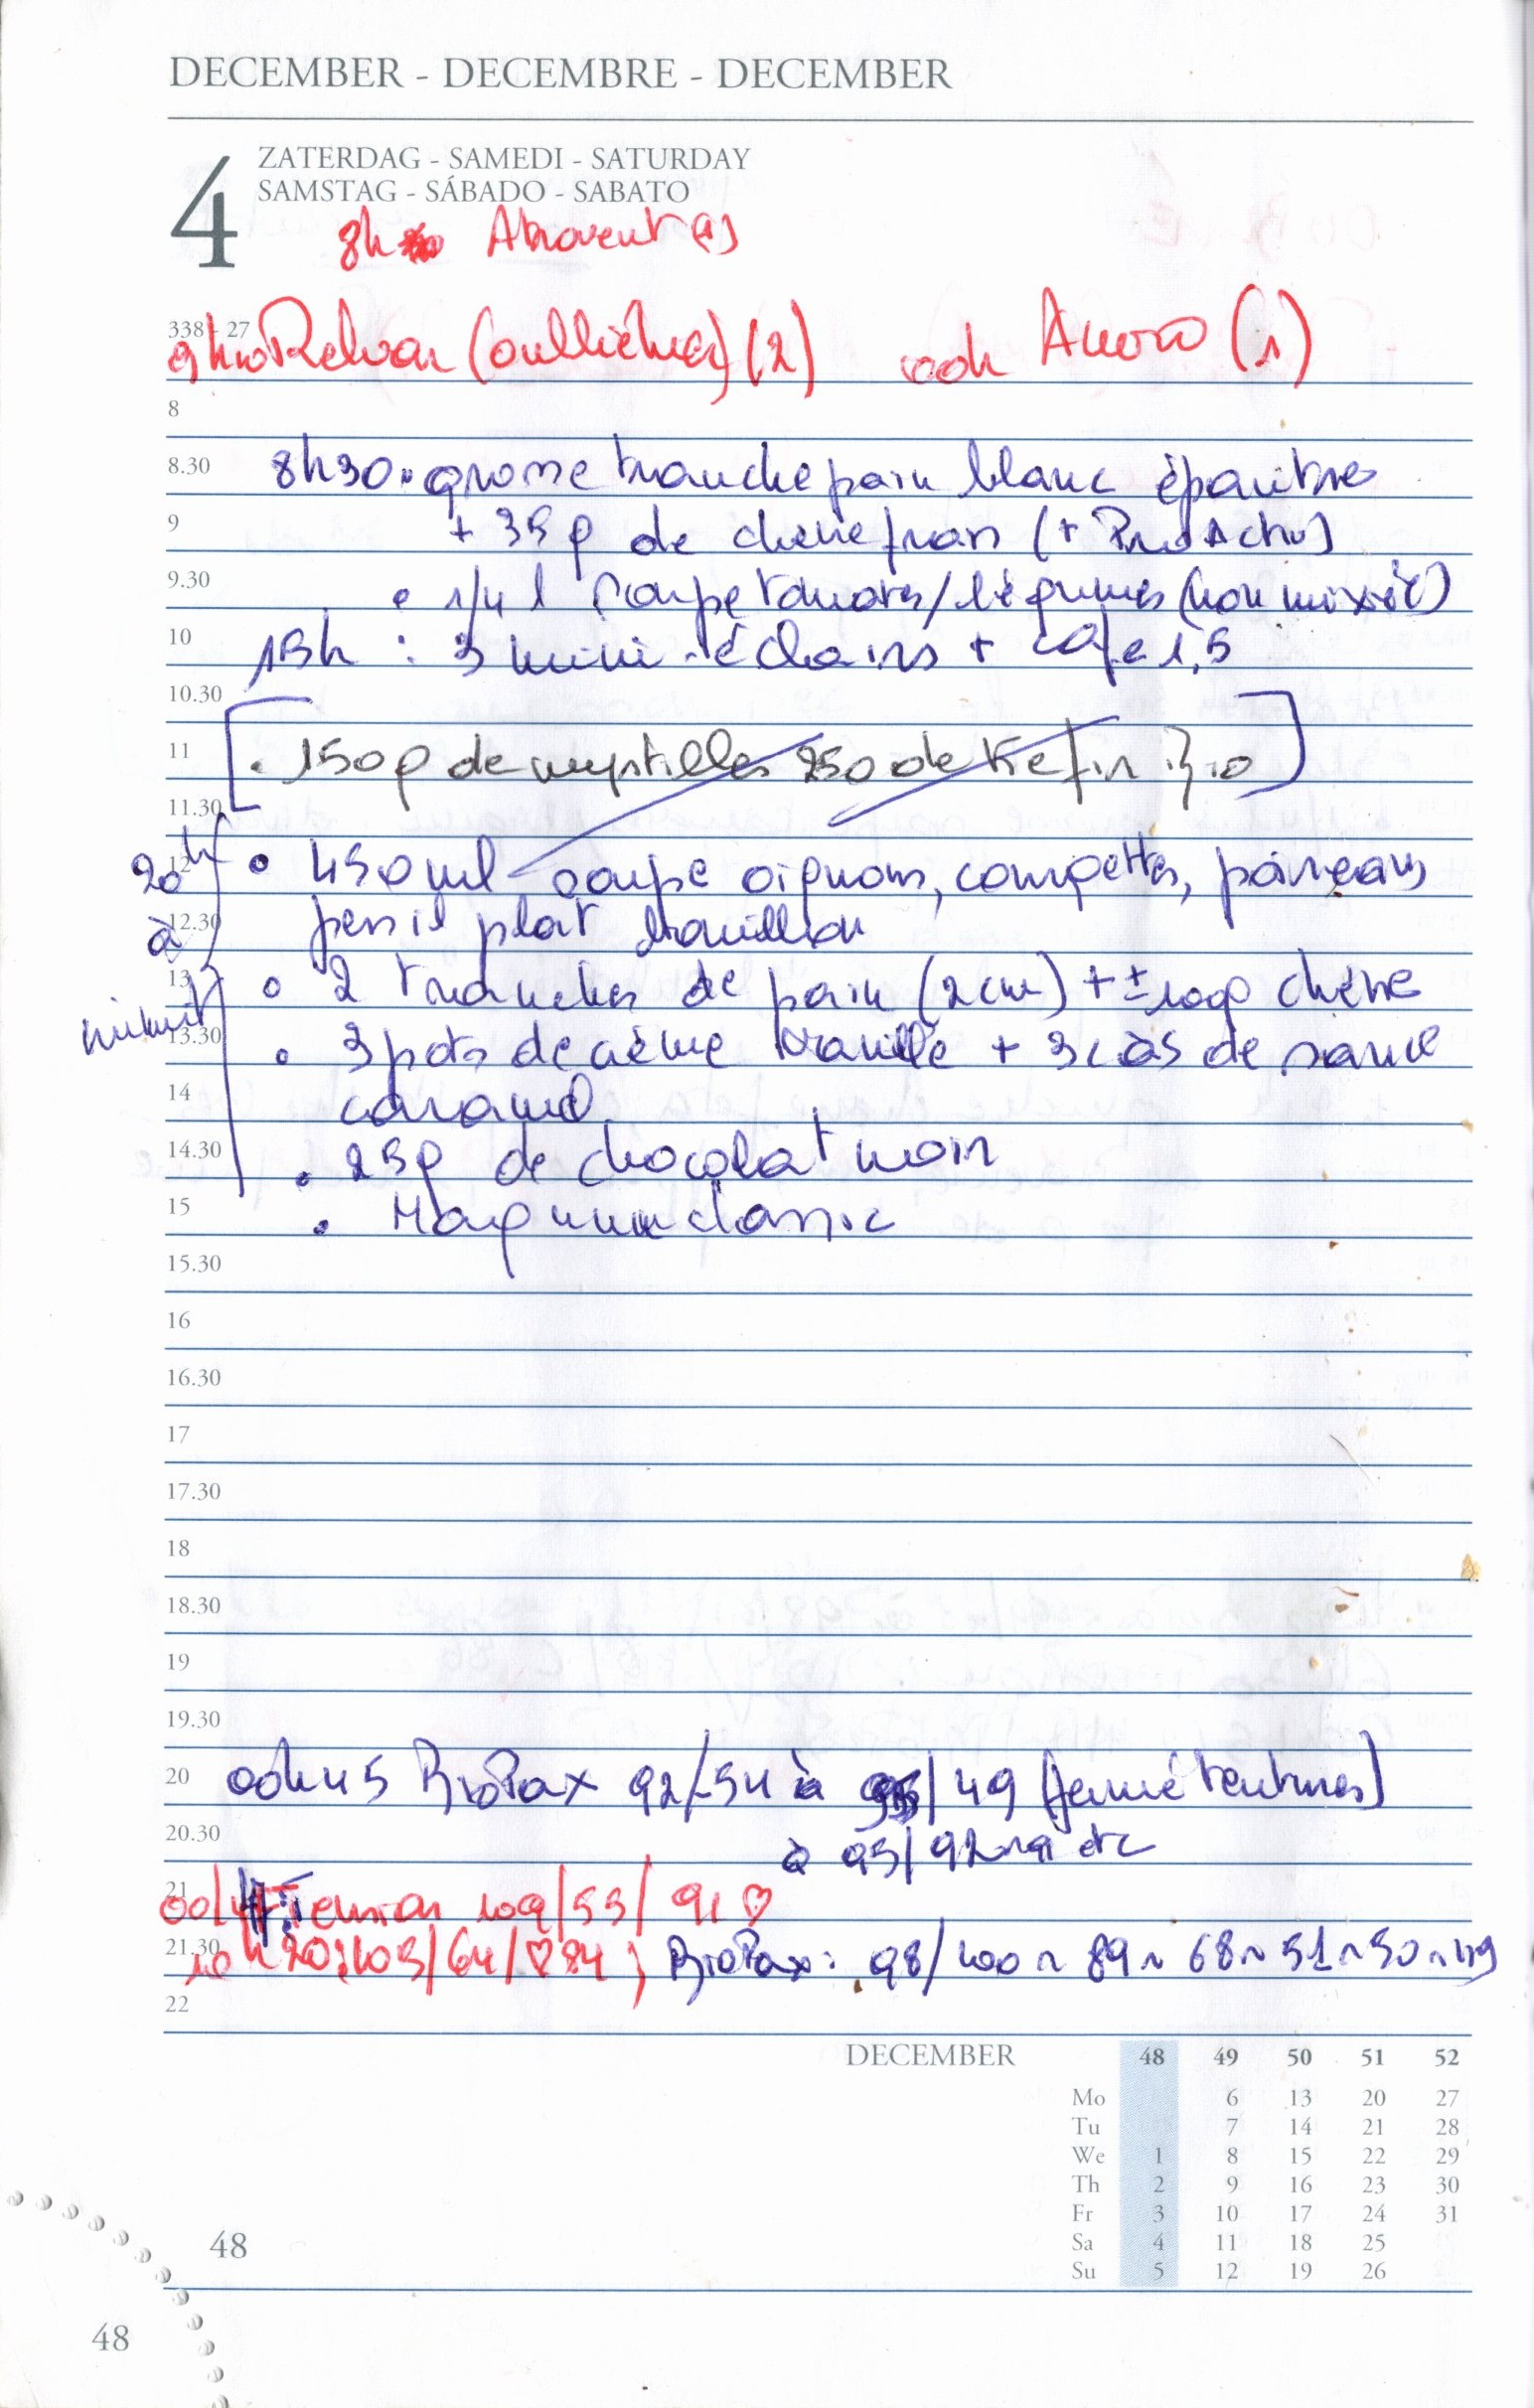 DECEMBER - DECEMBRE - DECEMBER
4
ZATERDAG - SAMEDI - SATURDAY
SAMSTAG - SÁBADO - SABATO
8h Atrovent (1)
338 - 27
Relvar (2) ooh Anoro (1)
8
8.30 8h30 • grosse tranche pain blanc épautre
9 + 35g de chèvre frais (+ ProActiv)
9.30 • 1/4 l soupe tomates/légumes (non mixée)
10 15h : 3 mini-éclairs + café 1,5
10.30
11 • 150g de myrtilles 250 de Kefir
11.30
20h à minuit
12 • 450 ml soupe oignons, courgettes, poireaux
12.30 persil plat bouillon
13 • 2 tranches de pain (2cm) + ± 100g chèvre
13.30 • 3 pots de crème vanille + 3 càs de sauce
14 caramel
14.30 • 25g de chocolat noir
15 • Magnum classic
15.30
16
16.30
17
17.30
18
18.30
19
19.30
20 ooh45 BioPax 92/54 à 95/49 (fermé tentures)
20.30 à 95/92 etc
21 Tension 109/55/ 91 ♡
21.30 20: 105/64/♡84 ; BioPax: 98/100 ~ 89 ~ 68 ~ 51 ~ 50 ~ 49
22
DECEMBER 48 49 50 51 52
Mo 6 13 20 27
Tu 7 14 21 28
We 1 8 15 22 29
Th 2 9 16 23 30
Fr 3 10 17 24 31
Sa 4 11 18 25
Su 5 12 19 26
48
48